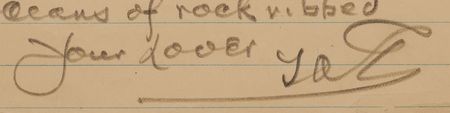 Oceans of rock ribbed
Your Lover